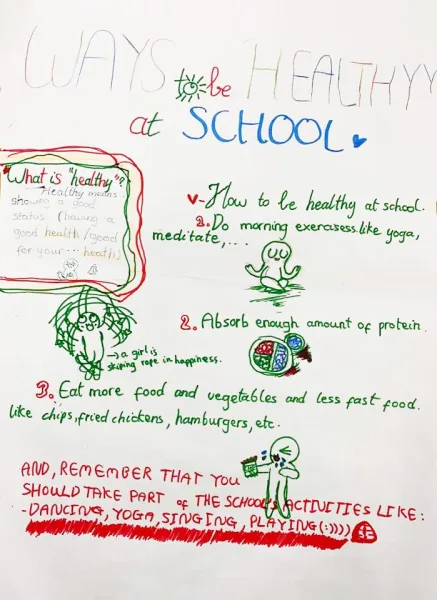 WAYS to be HEALTHYY
at SCHOOL
"What is "healthy"?
Healthy means
showing a good
status. (having a
good health/good
for your ... health)
v- How to be healthy at school.
1. Do morning exercisess like yoga,
meditate, ...
→ a girl is
skiping rope in happiness.
2. Absorb enough amount of protein.
3. Eat more food and vegetables and less fast food.
like chips, fried chickens, hamburgers, etc.
AND, REMEMBER THAT YOU
SHOULD TAKE PART of THE SCHOOL'S ACTIVITIES LIKE:
- DANCING, YOGA, SINGING, PLAYING (:))))